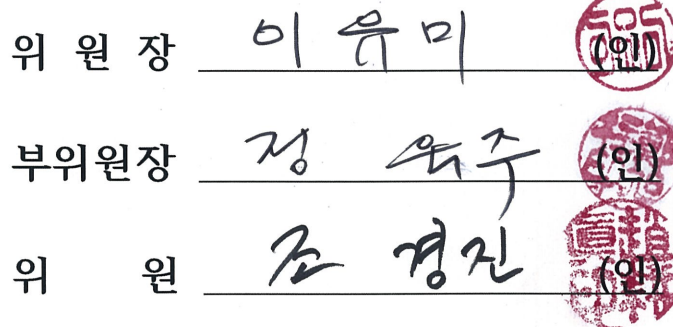 위 원 장 이 유 미 (인)
부위원장 정 욱주 (인)
위 원 조 경진 (인)